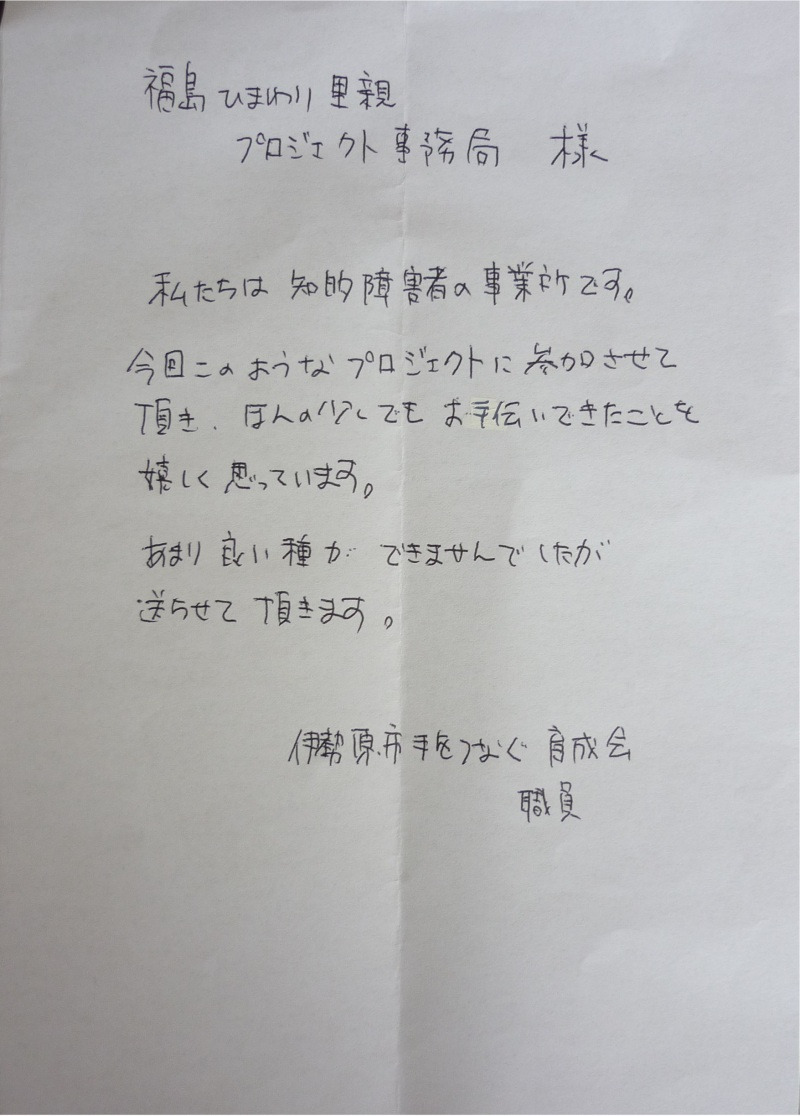 福島ひまわり里親
プロジェクト事務局 様
私たちは 知的障害者の事業所です。
今回このようなプロジェクトに参加させて
頂き、ほんの少しでもお手伝いできたことを
嬉しく思っています。
あまり良い種ができませんでしたが
送らせて頂きます。
伊勢原市手をつなぐ育成会
職員